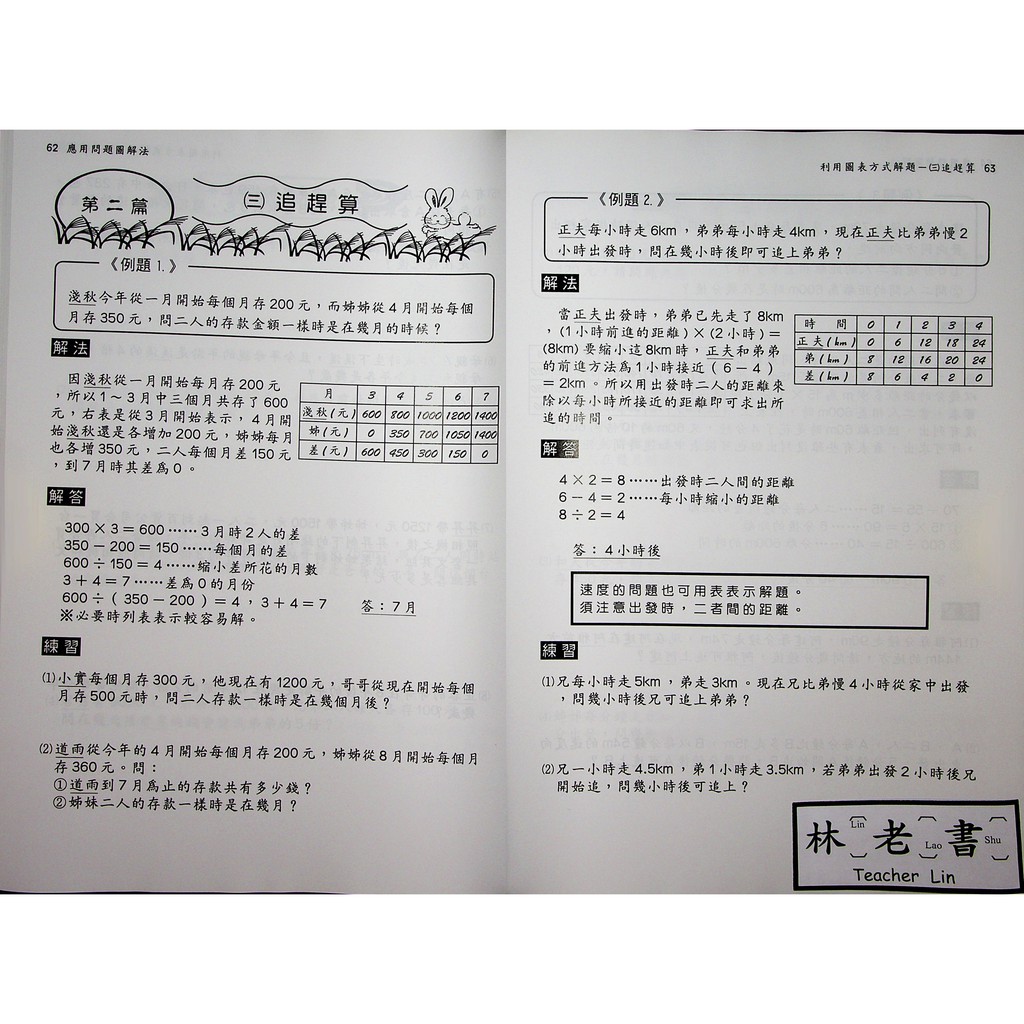 62 應用問題圖解法
第二篇
㈢追趕算
《例題1.》
淺秋今年從一月開始每個月存200元，而姊姊從4月開始每個
月存350元，問二人的存款金額一樣時是在幾月的時候？
解法
因淺秋從一月開始每月存200元
，所以1～3月中三個月共存了600
元，右表是從3月開始表示，4月開
始淺秋還是各增加200元，姊姊每月
也各增350元，二人每個月差150元
，到7月時其差為0。
月 3 4 5 6 7
淺秋(元) 600 800 1000 1200 1400
姊(元) 0 350 700 1050 1400
差(元) 600 450 300 150 0
解答
300×3＝600……3月時2人的差
350－200＝150……每個月的差
600÷150＝4……縮小差所花的月數
3＋4＝7……差為0的月份
600÷(350－200)＝4，3＋4＝7 答：7月
※必要時列表表示較容易解。
練習
⑴小實每個月存300元，他現在有1200元，哥哥從現在開始每個
月存500元時，問二人存款一樣時是在幾個月後？
⑵道雨從今年的4月開始每個月存200元，姊姊從8月開始每個月
存360元。問：
①道雨到7月為止的存款共有多少錢？
②姊妹二人的存款一樣時是在幾月？
利用圖表方式解題－㈢追趕算 63
《例題2.》
正夫每小時走6km，弟弟每小時走4km，現在正夫比弟弟慢2
小時出發時，問在幾小時後即可追上弟弟？
解法
當正夫出發時，弟弟已先走了8km
，(1小時前進的距離)×(2小時)＝
(8km)要縮小這8km時，正夫和弟弟
的前進方法為1小時接近(6－4)
＝2km。所以用出發時二人的距離來
除以每小時所接近的距離即可求出所
追的時間。
時間 0 1 2 3 4
正夫(km) 0 6 12 18 24
弟(km) 8 12 16 20 24
差(km) 8 6 4 2 0
解答
4×2＝8……出發時二人間的距離
6－4＝2……每小時縮小的距離
8÷2＝4
答：4小時後
速度的問題也可用表表示解題。
須注意出發時，二者間的距離。
練習
⑴兄每小時走5km，弟走3km。現在兄比弟慢4小時從家中出發
，問幾小時後兄可追上弟弟？
⑵兄一小時走4.5km，弟1小時走3.5km，若弟弟出發2小時後兄
開始追，問幾小時後可追上？
林 Lin 老 Lao 書 Shu
Teacher Lin